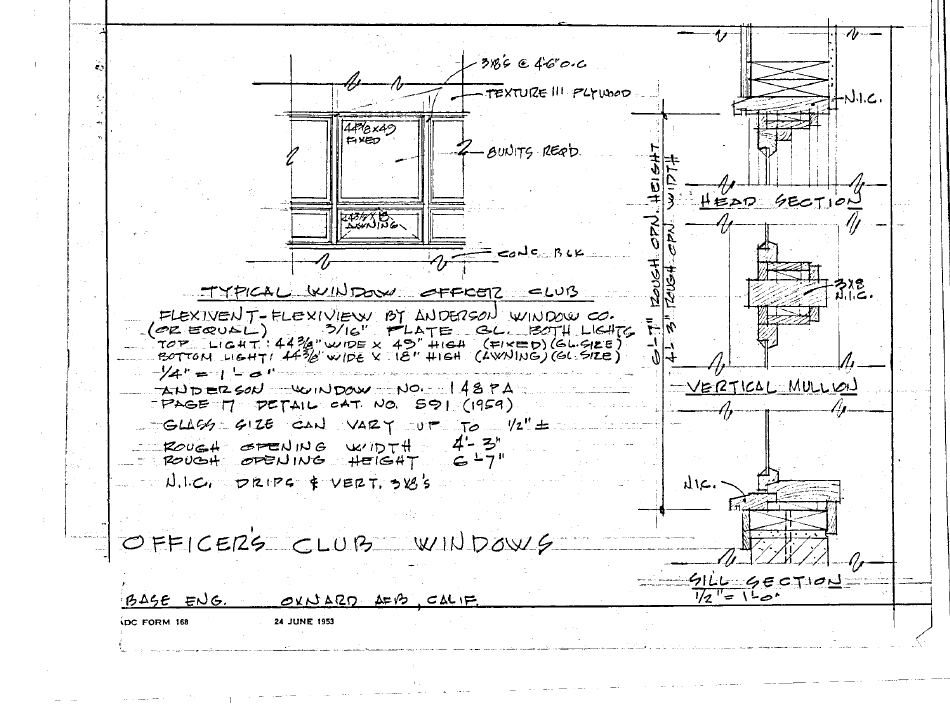 3X8'S @ 4'6" O.C
TEXTURE 111 PLYWOOD
44 3/8 X 49
FIXED
8 UNITS REQ'D.
44 3/8 X 18
AWNING
CONC BLK
TYPICAL WINDOW OFFICER CLUB
FLEXIVENT-FLEXIVIEW BY ANDERSON WINDOW CO.
(OR EQUAL) 3/16" PLATE GL. BOTH LIGHTS
TOP LIGHT: 44 3/8" WIDE X 49" HIGH (FIXED) (GL.SIZE)
BOTTOM LIGHT: 44 3/8" WIDE X 18" HIGH (AWNING) (GL.SIZE)
1/4" = 1'-0"
ANDERSON WINDOW NO. 148 PA
PAGE 17 DETAIL CAT. NO. 591 (1959)
GLASS SIZE CAN VARY UP TO 1/2" ±
ROUGH OPENING WIDTH 4'-3"
ROUGH OPENING HEIGHT 6'-7"
N.I.C. DRIPS & VERT. 3X8'S
6'-7" ROUGH OPN. HEIGHT
4'-3" ROUGH OPN WIDTH
N.I.C.
HEAD SECTION
3X8
N.I.C.
VERTICAL MULLION
N.I.C.
SILL SECTION
1/2" = 1'-0"
OFFICER'S CLUB WINDOWS
BASE ENG. OXNARD AFB, CALIF.
ADC FORM 168 24 JUNE 1953